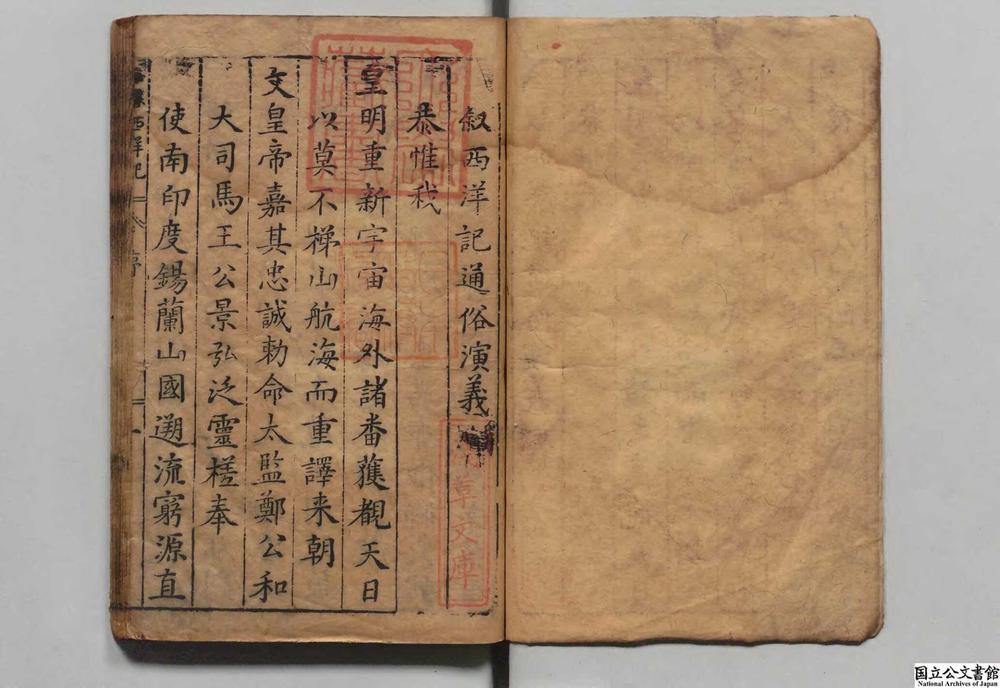 叙西洋記通俗演義
恭惟我
皇明重新宇宙海外諸番獲覩天日
以莫不梯山航海而重譯来朝
文皇帝嘉其忠誠勅命太監鄭公和
大司馬王公景弘泛靈槎奉
使南印度錫蘭山國遡流窮源直
西洋記
序
一
草文庫
国立公文書館
National Archives of Japan